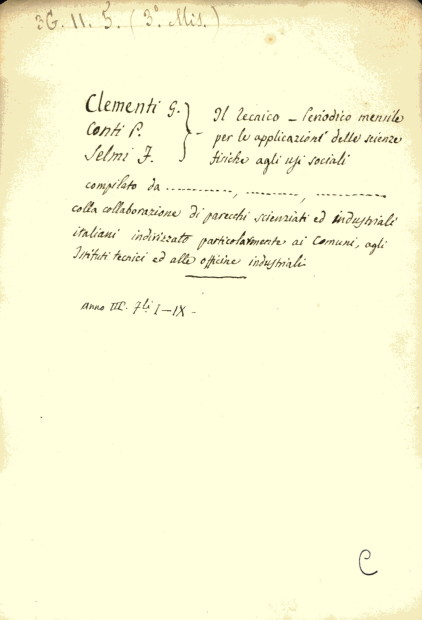 3G. 11. 5. (3° Mis.)
Clementi G. } - Il Tecnico - Periodico mensile
Conti P. per le applicazioni delle scienze
Selmi F. fisiche agli usi sociali
compilato da ............, ............, ............
colla collaborazione di parecchi scienziati ed industriali
italiani indirizzato particolarmente ai Comuni, agli
Istituti tecnici ed alle officine industriali
anno III. fli I-IX -
C